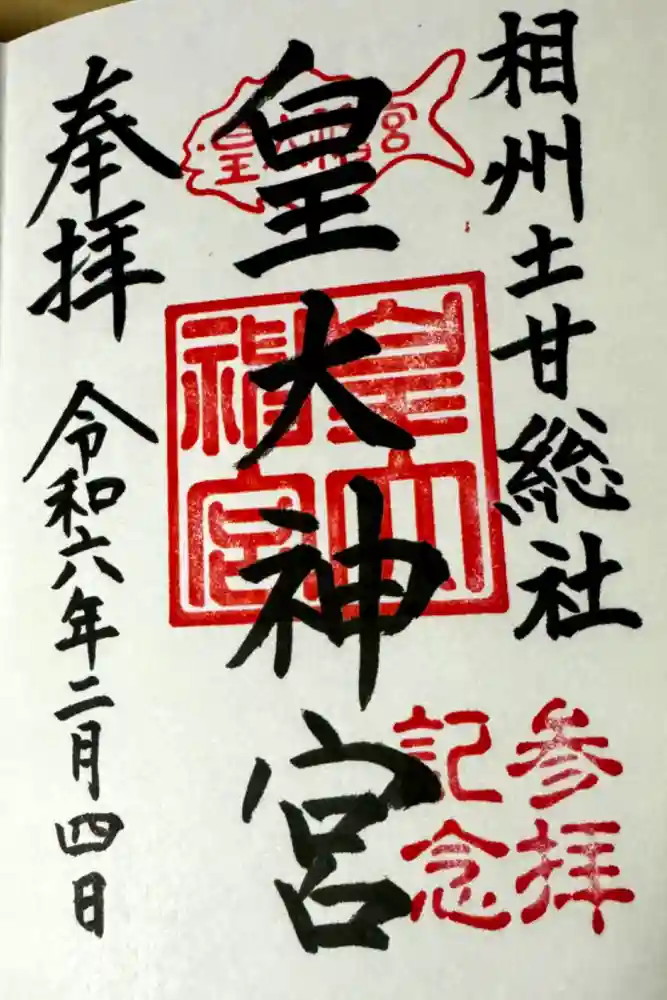 相州土甘総社
参拝
記念
皇大神宮
皇大神宮
皇大
神宮
奉拝
令和六年二月四日